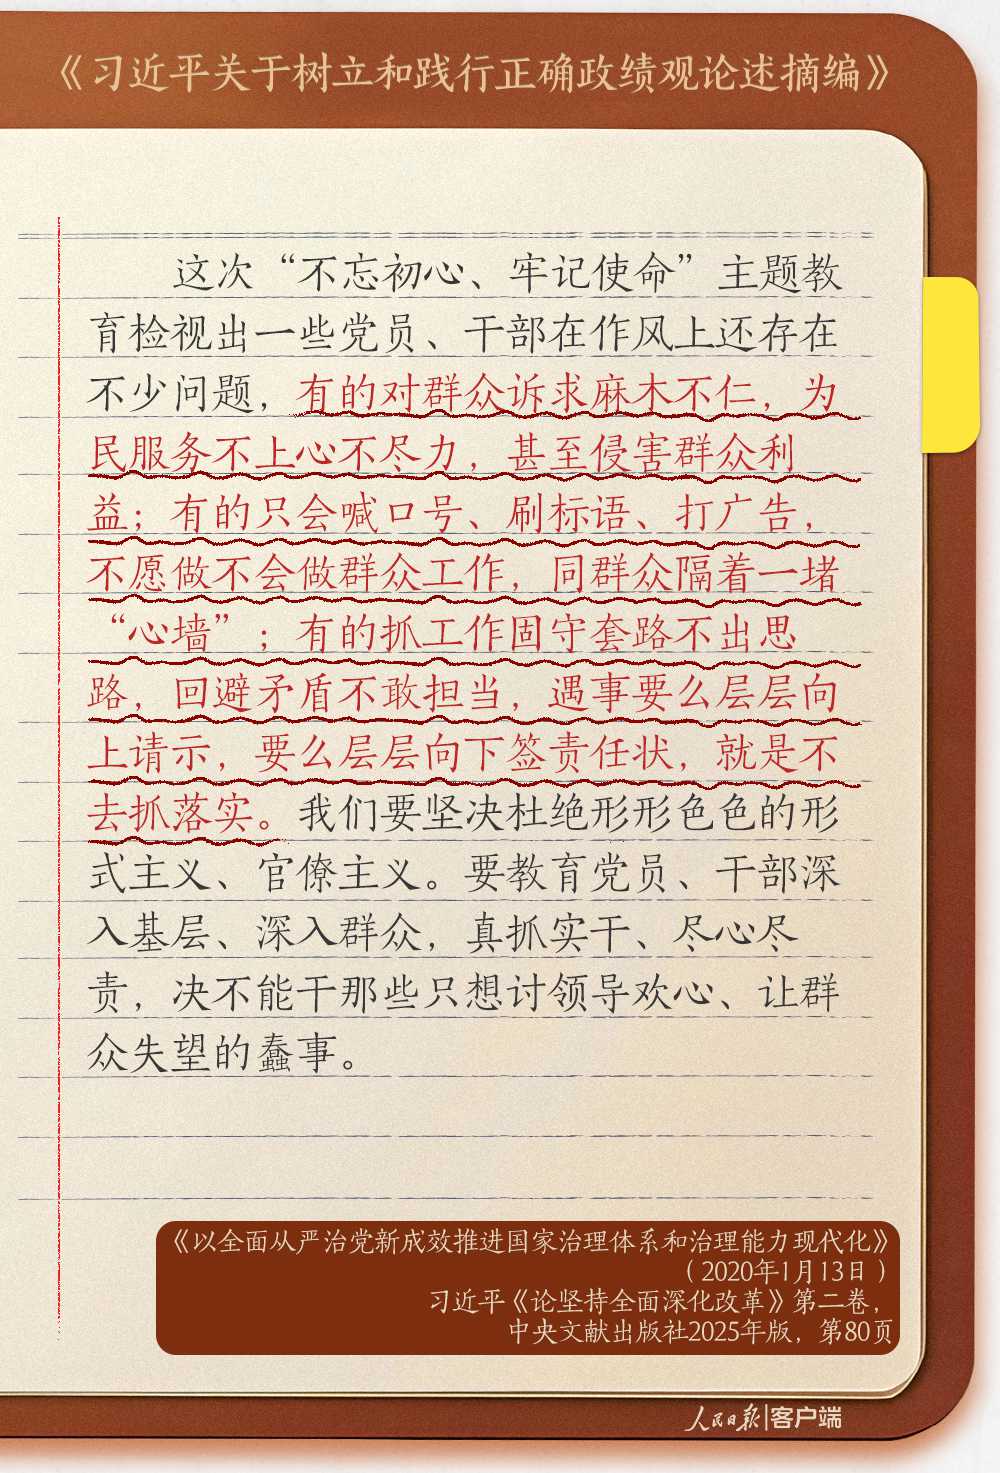 《习近平关于树立和践行正确政绩观论述摘编》
这次“不忘初心、牢记使命”主题教
育检视出一些党员、干部在作风上还存在
不少问题，有的对群众诉求麻木不仁，为
民服务不上心不尽力，甚至侵害群众利
益；有的只会喊口号、刷标语、打广告，
不愿做不会做群众工作，同群众隔着一堵
“心墙”；有的抓工作固守套路不出思
路，回避矛盾不敢担当，遇事要么层层向
上请示，要么层层向下签责任状，就是不
去抓落实。我们要坚决杜绝形形色色的形
式主义、官僚主义。要教育党员、干部深
入基层、深入群众，真抓实干、尽心尽
责，决不能干那些只想讨领导欢心、让群
众失望的蠢事。
《以全面从严治党新成效推进国家治理体系和治理能力现代化》
（2020年1月13日）
习近平《论坚持全面深化改革》第二卷，
中央文献出版社2025年版，第80页
人民日报|客户端